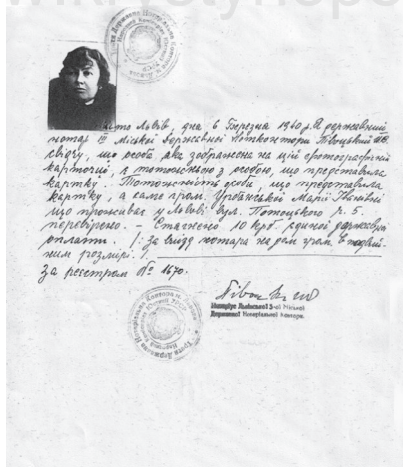 Місто Львів дня 6 Березня 1940 р. Я державний
нотар III Міської Державної Нотконтори
свідчу, що особа яка зображена на цій фотографічній
карточці, є тотожньою з особою, що представила
картку. Тотожність особи, що представила
картку, а саме гром. Марії Іванівни
що проживає у Львові вул. Потоцького ч. 5.
перевірено. – Стягнено 10 крб. єдиної державної
оплати. /: За виїзд нотара на дом гром. в подвій-
ним розмірі. :/
За реєстром № 1670.
Нотаріус Львівської 3-ої Міської
Державної Нотаріальної Контори.